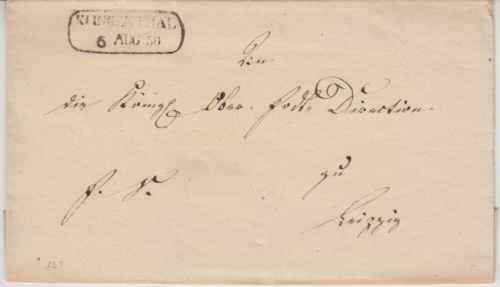 KLINGENTHAL
6 AUG 50
An
die Königl Ober. Post Direction
zu
Leipzig